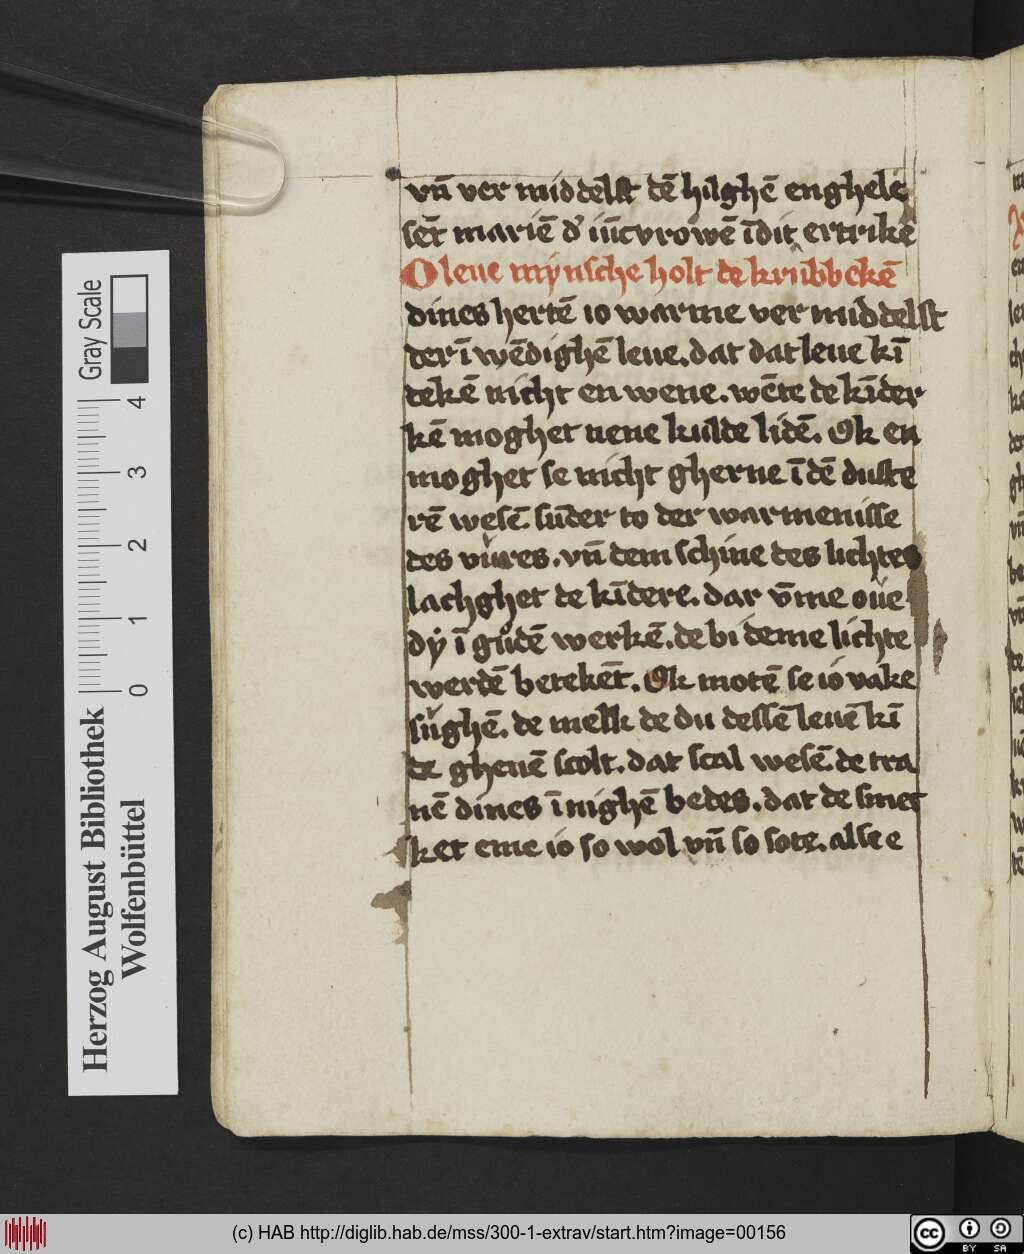 vn̄ ver middelst dē hilghē enghele
sēt mariē d' iūcvrowē īdit ertrike
O leue mynsche holt de krubbekē
dines hertē io warme ver middelst
der ī wēdighē leue. dat dat leue kī
dekē nicht en wene. wēte de kīder
kē moghet nene kulde lidē. Ok en
moghet se nicht gherne ī dē duste
rē wesē. sūder to der warmenisse
des vures. vn̄ dem schine des lichtes
lachghet de kīdere. dar v̄me oue
dy ī gudē werkē. de bi deme lichte
werdē betekēt. Ok motē se io vake
sughē. de melk de du dessē leuē kī
de gheuē scolt. dat scal wesē de tra
nē dines īnighē bedes. dat de smet
ket eme io so wol vn̄ so sote. alse e
Gray Scale
0 1 2 3 4
Herzog August Bibliothek
Wolfenbüttel
(c) HAB http://diglib.hab.de/mss/300-1-extrav/start.htm?image=00156
CC BY SA